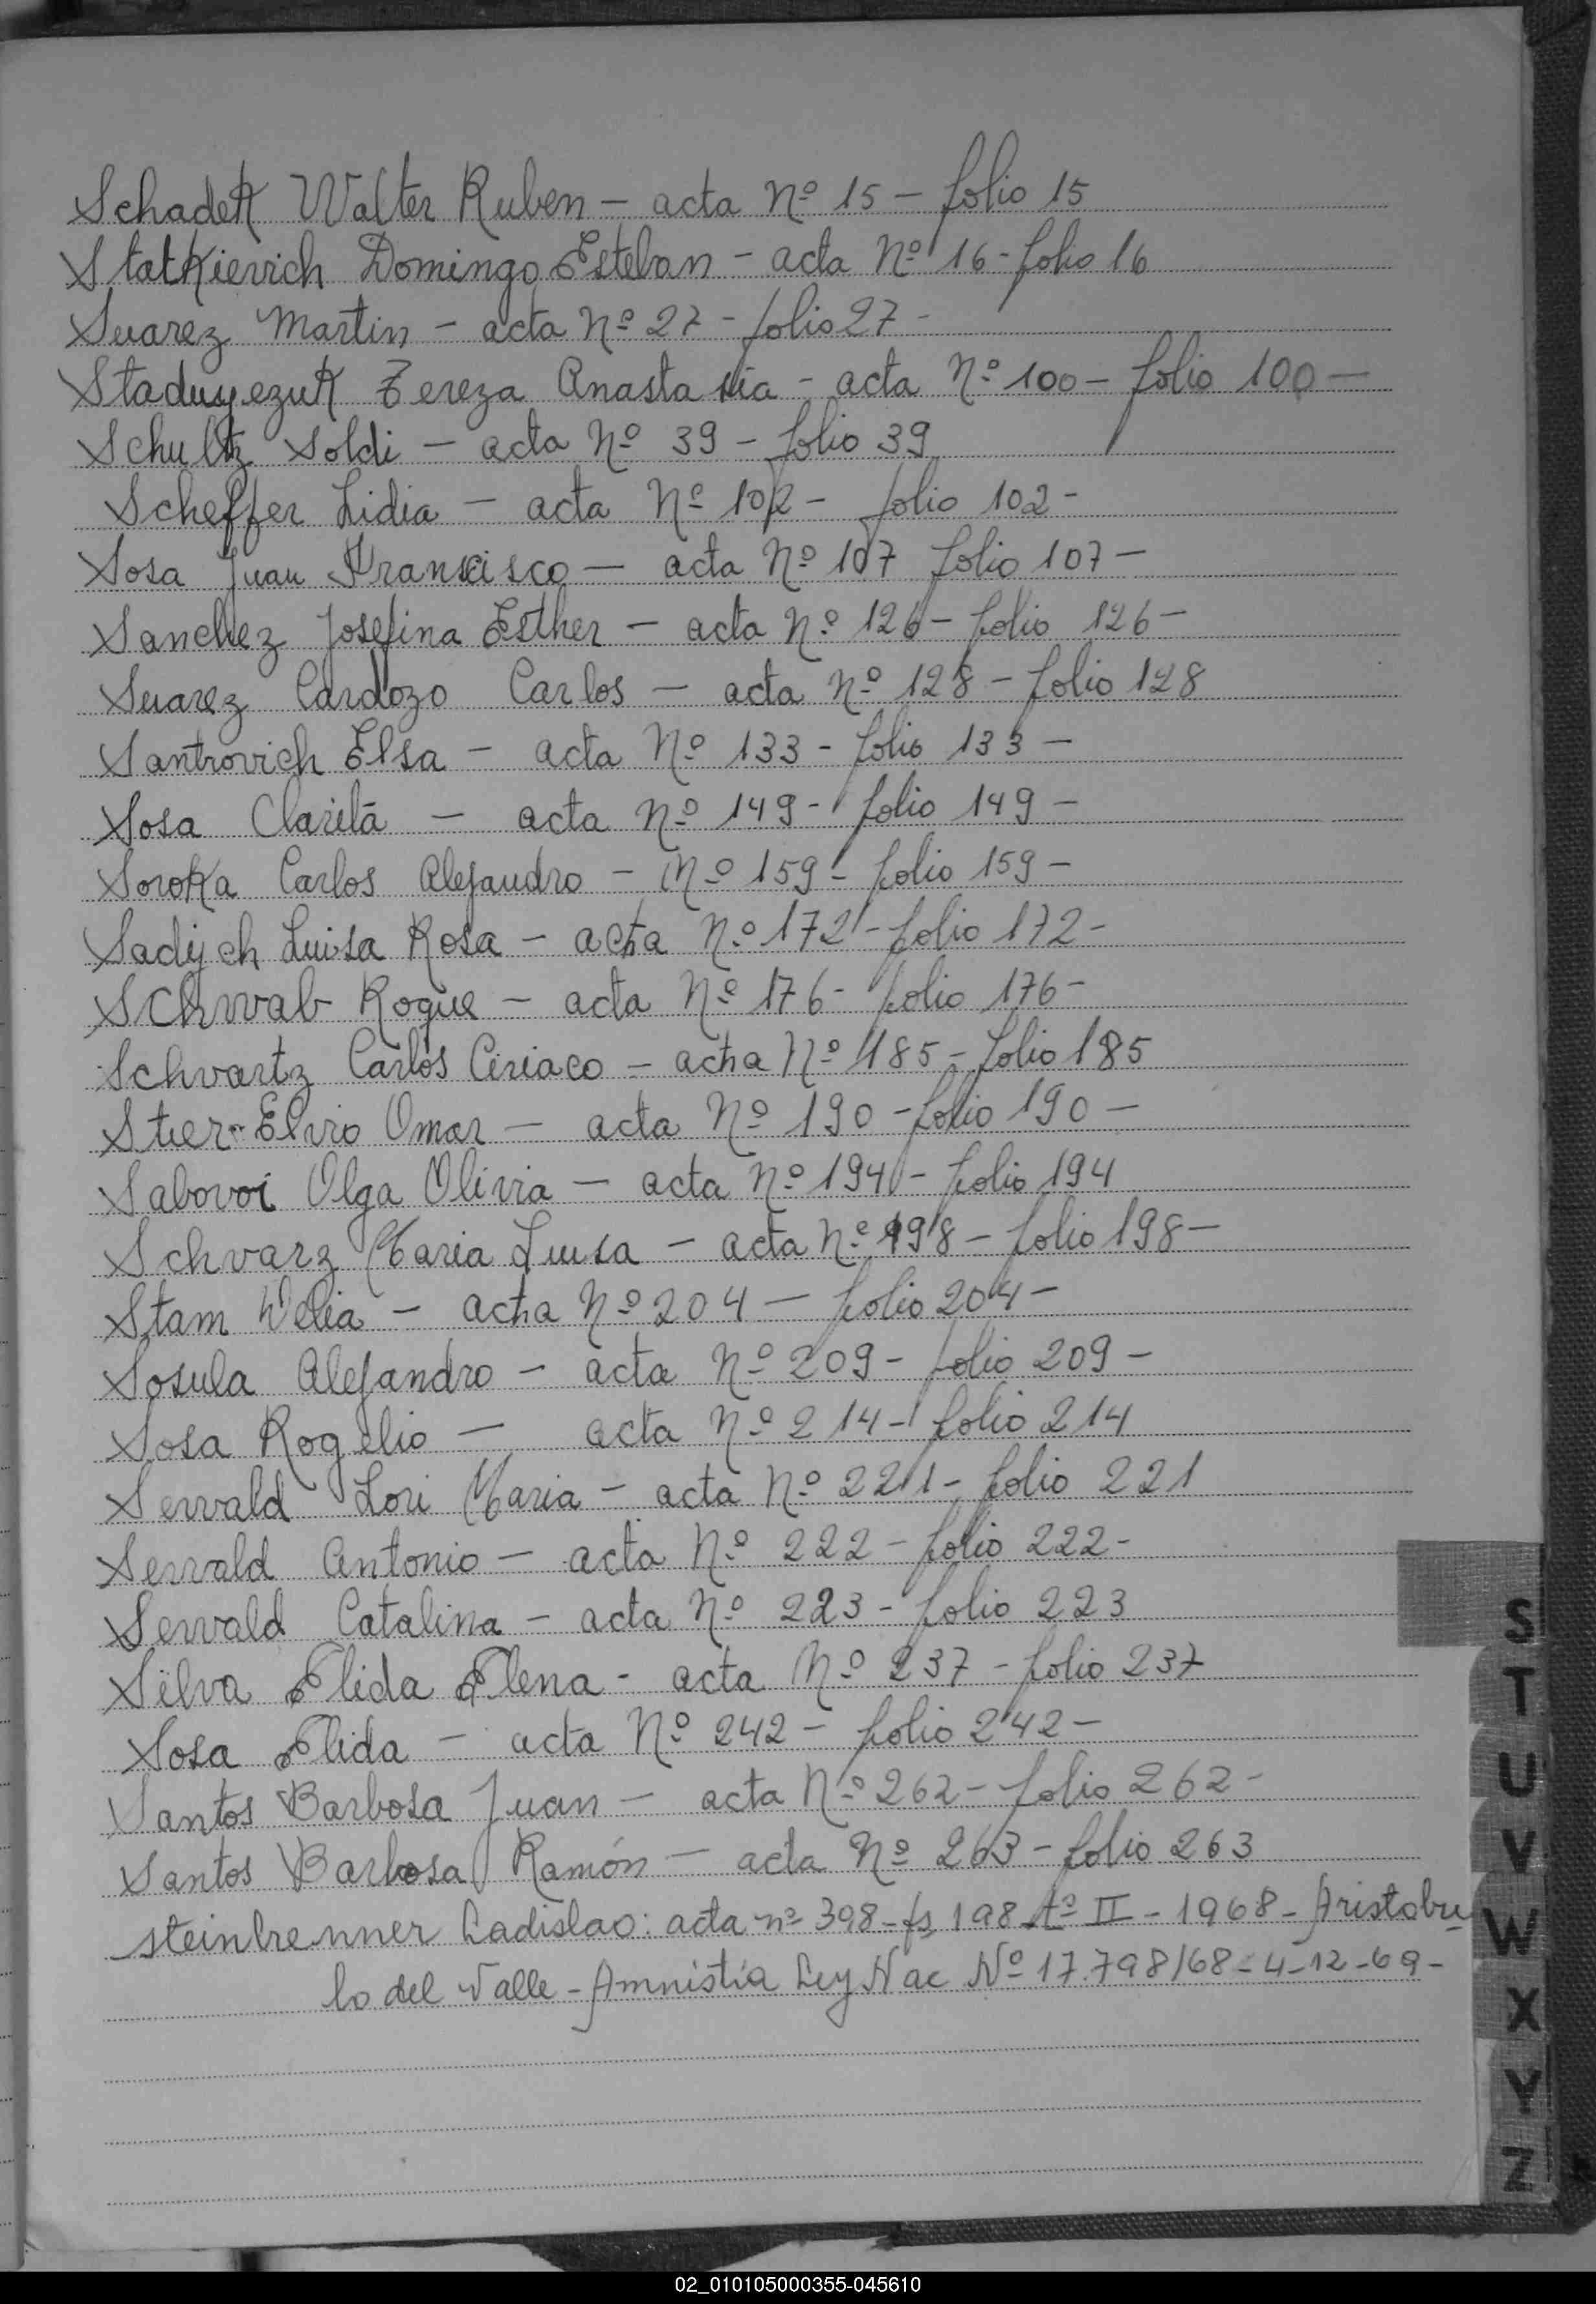 Schadek Walter Ruben - acta Nº 15 - folio 15
Statkievich Domingo Esteban - acta Nº 16 - folio 16
Suarez Martin - acta Nº 27 - folio 27 -
Staduyezuk Tereza Anastasia - acta Nº 100 - folio 100 -
Schultz Soldi - acta Nº 39 - folio 39
Scheffer Lidia - acta Nº 102 - folio 102 -
Sosa Juan Fransisco - acta Nº 107 folio 107 -
Sanchez Josefina Esther - acta Nº 126 - folio 126 -
Suarez Cardozo Carlos - acta Nº 128 - folio 128
Santrovich Elsa - acta Nº 133 - folio 133 -
Sosa Clarita - acta Nº 149 - folio 149 -
Soroka Carlos Alejandro - Nº 159 - folio 159 -
Sadych Luisa Rosa - acta Nº 172 - folio 172 -
Schwab Roque - acta Nº 176 - folio 176 -
Schvartz Carlos Ciriaco - acta Nº 185 - folio 185
Stier Elvio Omar - acta Nº 190 - folio 190 -
Sabovoi Olga Olivia - acta Nº 194 - folio 194
Schvarz Maria Luisa - acta Nº 198 - folio 198 -
Stam Delia - acta Nº 204 - folio 204 -
Sosula Alejandro - acta Nº 209 - folio 209 -
Sosa Rogelio - acta Nº 214 - folio 214
Servald Lori Maria - acta Nº 221 - folio 221
Servald Antonio - acta Nº 222 - folio 222 -
Servald Catalina - acta Nº 223 - folio 223
Silva Elida Elena - acta Nº 237 - folio 237
Sosa Elida - acta Nº 242 - folio 242 -
Santos Barbosa Juan - acta Nº 262 - folio 262 -
Santos Barbosa Ramón - acta Nº 263 - folio 263
Steinbrenner Ladislao: acta nº 398 - fs 198 tº II - 1968 - Aristobu
lo del Valle - Amnistia Ley Nac Nº 17.798/68 - 4-12-69 -
S
T
U
V
W
X
Y
Z
02_010105000355-045610